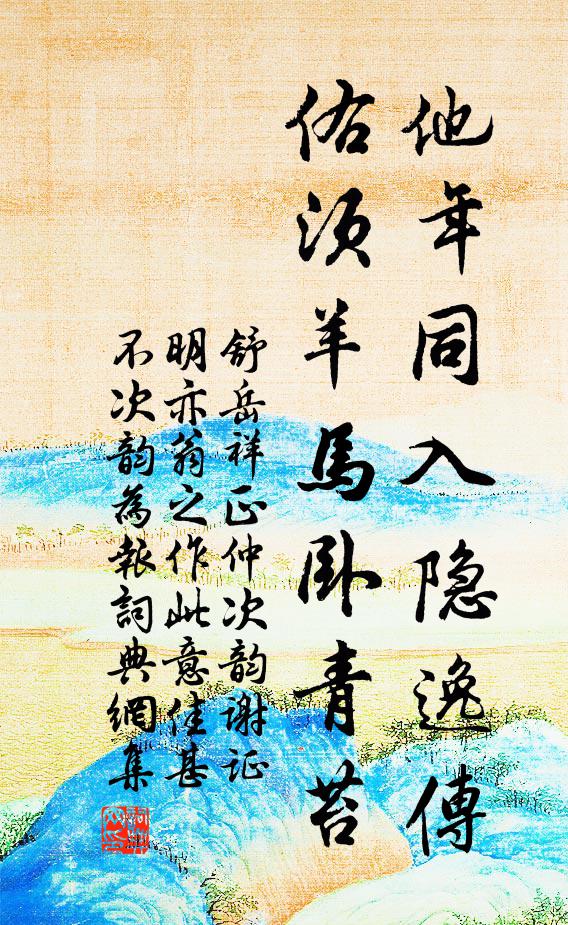 他年同入隐逸傳
佑须羊馬卧青苔
舒岳祥正仲次韵謝证
明亦翁之作此意佳甚
不次韵為報詞典網集